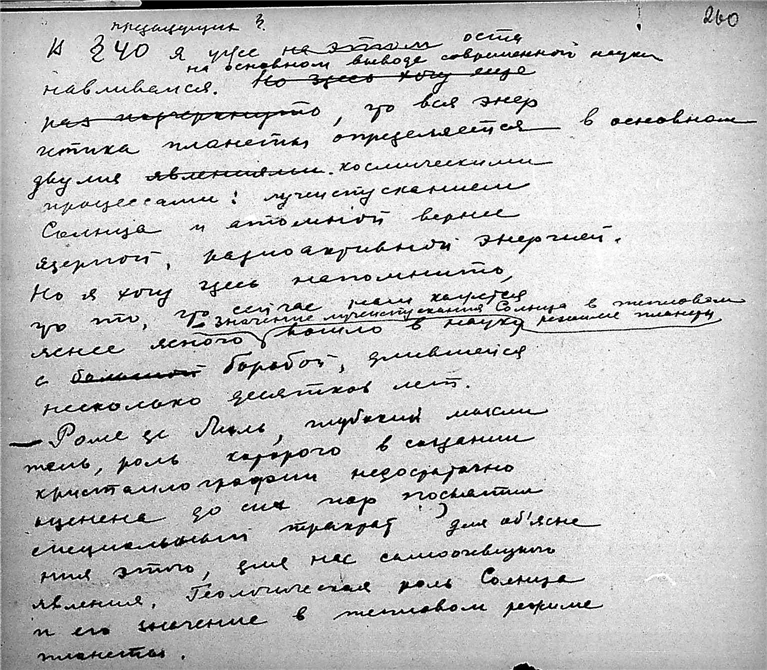 260
предыдущих
В § 40 я уже на этом оста
на основном выводе современной науки
навливался. Но здесь хочу еще
раз подчеркнуть, что вся энер
гетика планеты определяется в основном
двумя явлениями космическими
процессами: лучеиспусканием
Солнца и атомной вернее
ядерной, радиоактивной энергией.
Но я хочу здесь напомнить,
что то, что сейчас нам кажется
значение лучеиспускания Солнца в тепловом
яснее ясного вошло в науку режиме планеты
с большой борьбой, длившейся
несколько десятков лет.
— Роме де Лиль, глубокий мысли
тель, роль которого в создании
кристаллографии недостаточно
оценена до сих пор посвятил
специальный трактат для об'ясне
ния этого, для нас самоочевидного
явления. Геологическая роль Солнца
и его значение в тепловом режиме
планеты.